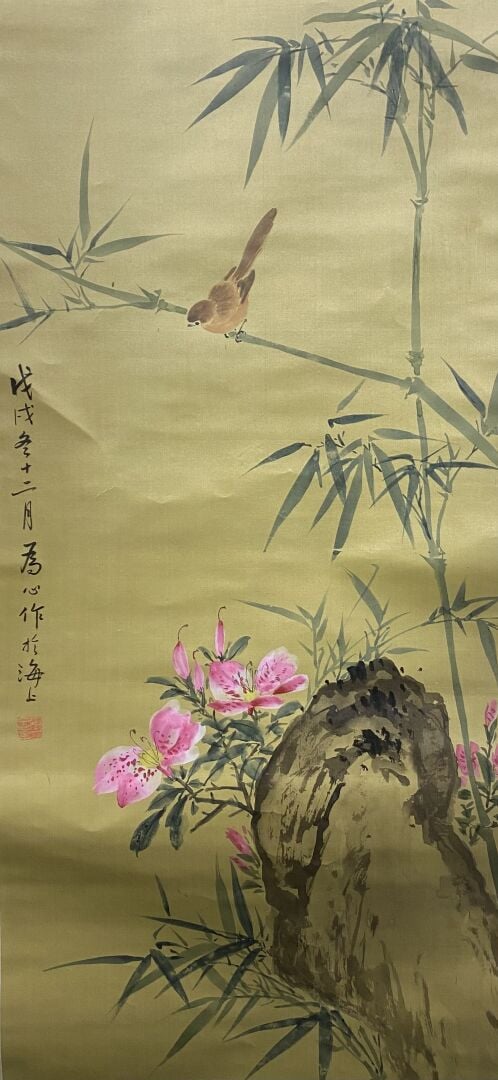 戊戌冬十二月為心作於海上